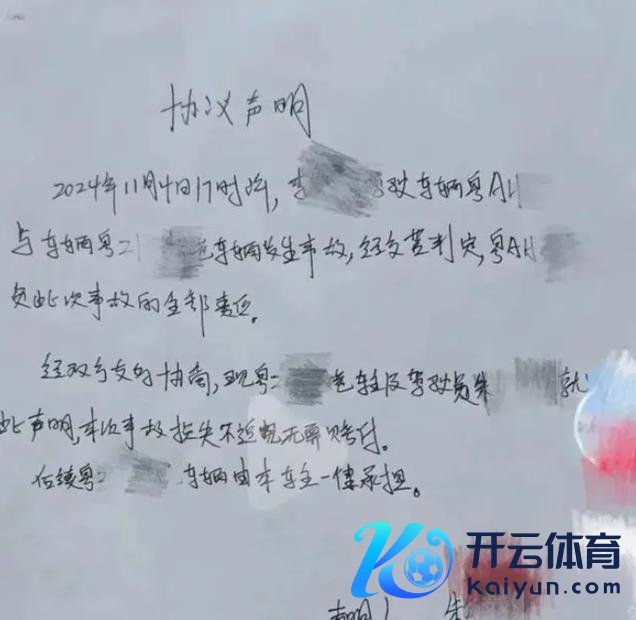 协议声明
2024年11月4日17时许，李 驾驶车辆粤AH
与车辆粤Z 色车辆发生事故，经交警判定，粤AH
负此次事故的全部责任。
经双方友好协商，现粤Z 色车主及驾驶员朱 就
此声明，本次事故损失不追究无需赔付。
后续粤Z 车辆由本车主一律承担。
声明人 朱
开云体育
Kaiyun.com